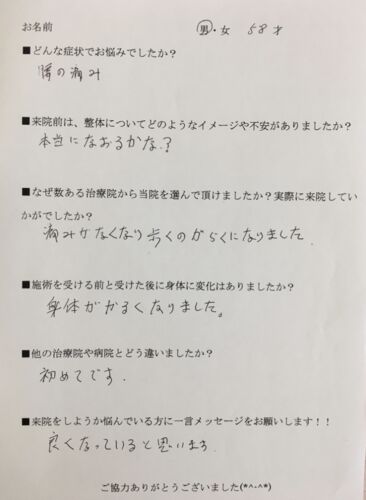 お名前　男・女　58才
■どんな症状でお悩みでしたか？
腰の痛み
■来院前は、整体についてどのようなイメージや不安がありましたか？
本当になおるかな？
■なぜ数ある治療院から当院を選んで頂けましたか？実際に来院してい
かがでしたか？
痛みがなくなり歩くのがらくになりました．
■施術を受ける前と受けた後に身体に変化はありましたか？
身体がかるくなりました。
■他の治療院や病院とどう違いましたか？
初めてです．
■来院をしようか悩んでいる方に一言メッセージをお願いします！！
良くなっていると思います．
ご協力ありがとうございました(*^-^*)